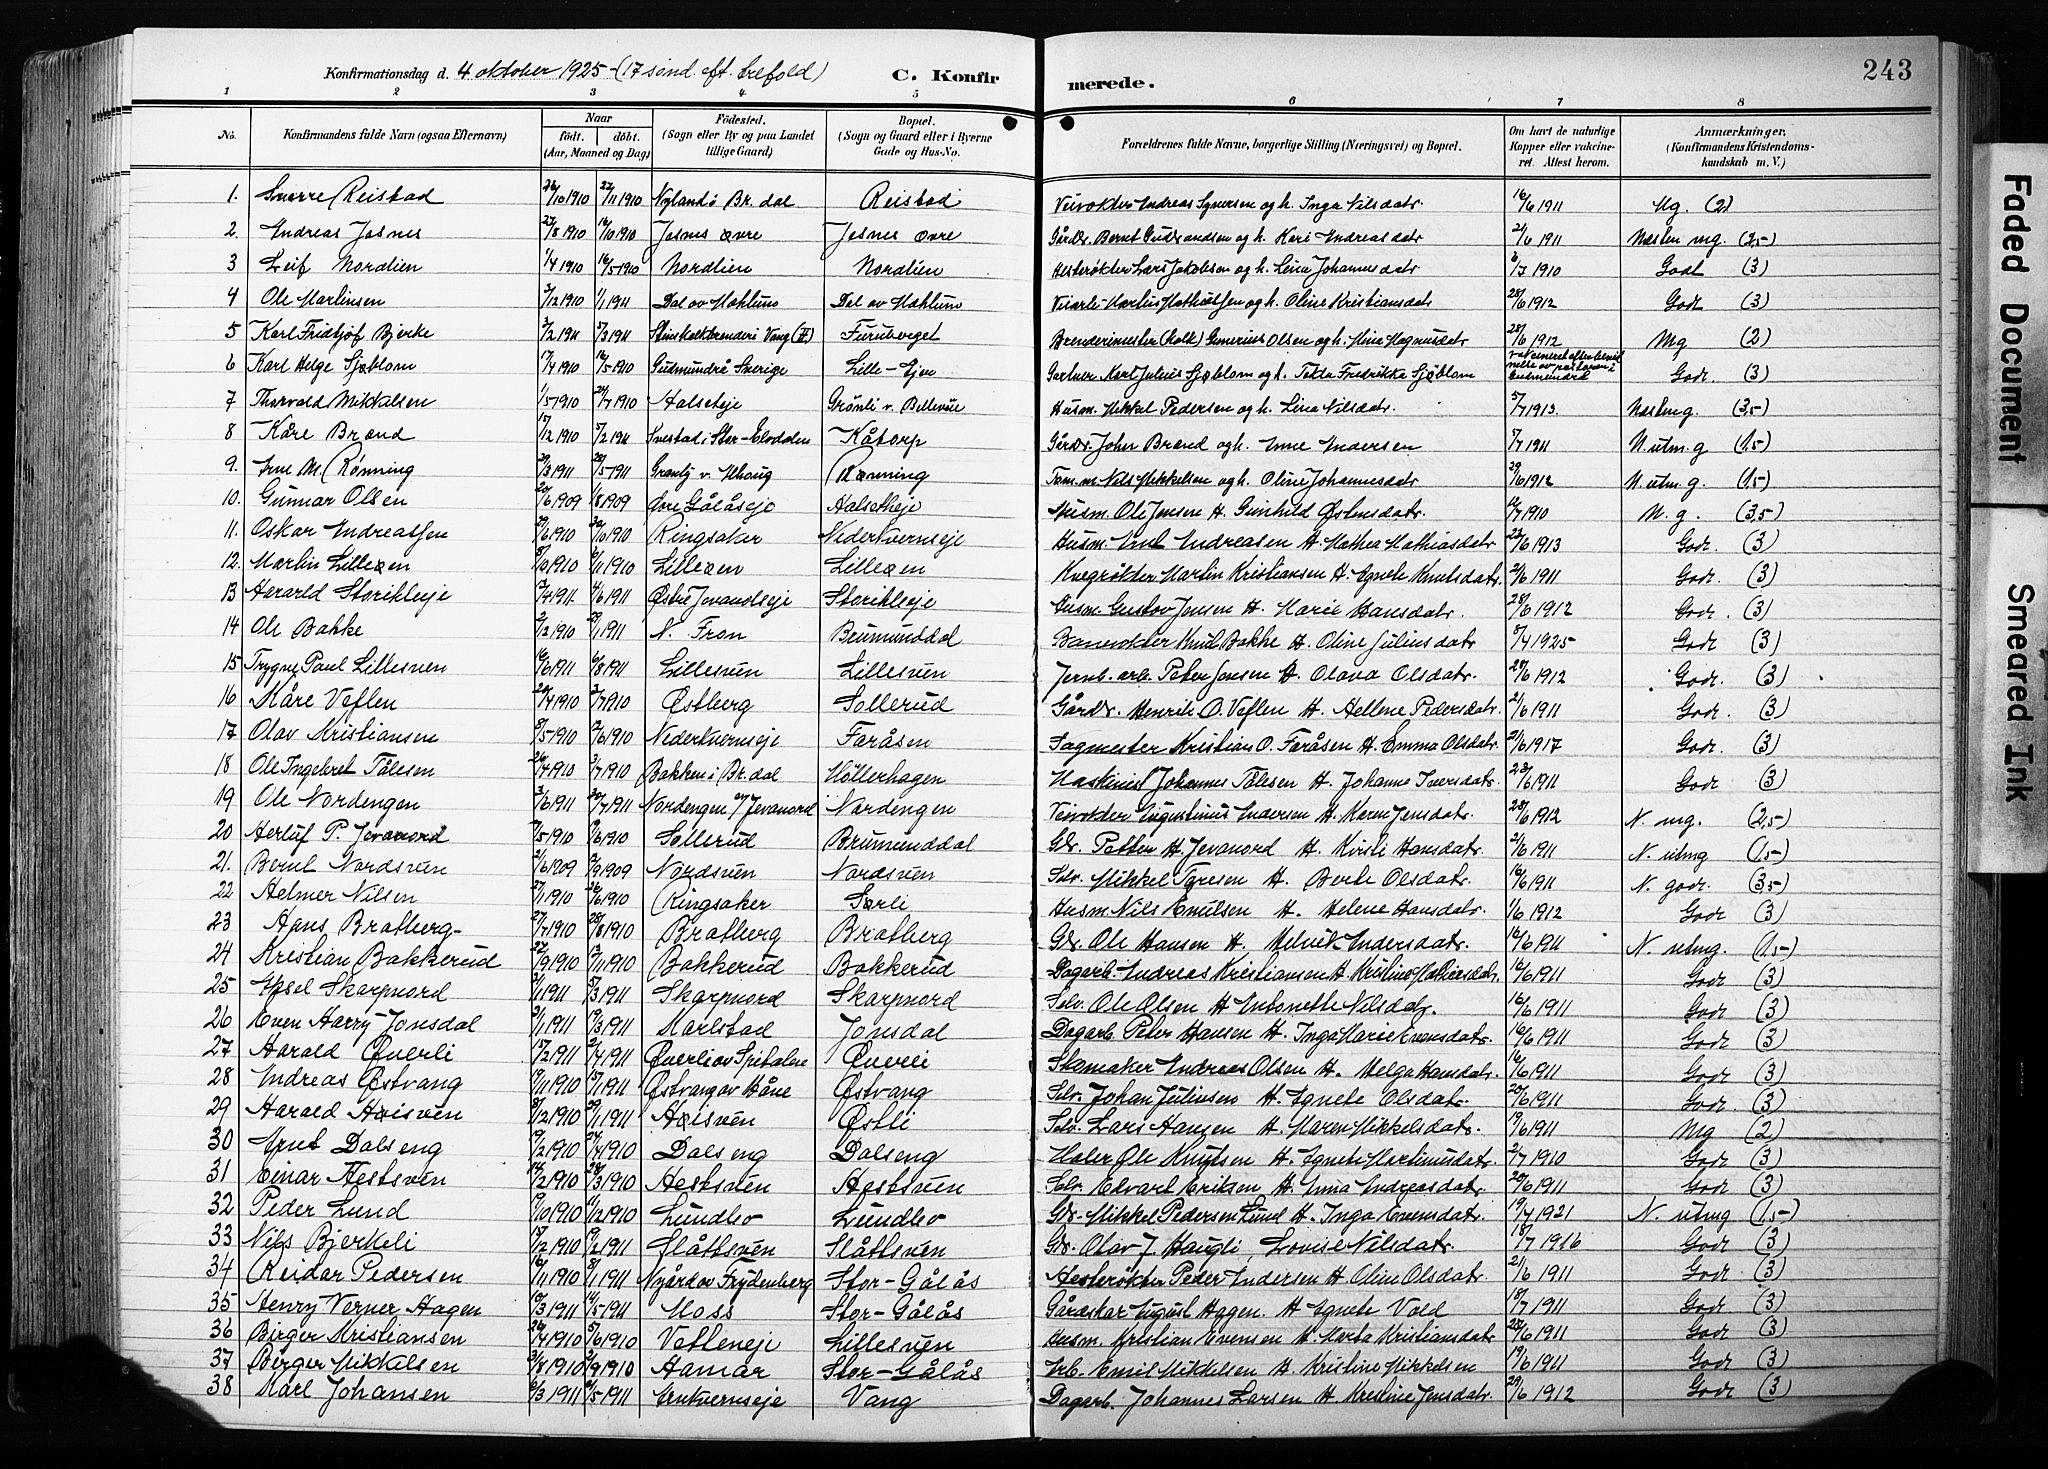 Konfirmationsdag d. 4 oktober 1925 - (17 sønd. eft. trefold)
C. Konfirmerede.
243
1 2 3 4 5 6 7 8
No.
Konfirmandens fulde Navn (ogsaa Efternavn)
Naar
født. døbt.
(Aar, Maaned og Dag)
Fødested.
(Sogn eller By og paa Landet
tillige Gaard)
Bopæl.
(Sogn og Gaard eller i Byerne
Gade og Hus-No.
Forældrenes fulde Navne, borgerlige Stilling (Næringsvei) og Bopæl.
Om havt de naturlige
Kopper eller vakcine-
ret. Attest herom.
Anmærkninger.
(Konfirmandens Kristendoms-
kundskab m. V.)
1. Sverre Reistad 26/10 1910 22/11 1910 Nyland i Br.dal Reistad Veivokter Andreas Syversen og h. Inga Nilsdatr. 16/6 1911 Mg. (2)
2. Andreas Josnes 27/8 1910 16/10 1910 Josnes øvre Josnes øvre Gårdbr. Bernt Gudbrandsen og h. Kari Andreasdatr 21/6 1911 Næsten mg. (2,5)
3 Leif Nordlien 1/4 1910 16/5 1910 Nordlien Nordlien Hesterøkter Lars Jakobsen og h. Lina Johannesdatr 6/7 1910 Godt (3)
4 Ole Martinsen 3/12 1910 1/1 1911 Dal av Mæhlum Dal av Mæhlum Veiarb. Martin Mathiassen og h. Oline Kristiansdatr 28/6 1912 Godt (3)
5 Karl Fridtjof Bjerke 3/2 1911 5/3 1911 Stenskalkbrenderi Vang (H.) Furubæget Brenderimester (kalk) Gunerius Olsen og h. Mina Magnusdatr 28/6 1912 Mg (2)
6 Karl Helge Sjøblom 17/4 1910 16/5 1910 Gudmundrå Sverige Lille-Ejer Gartner Karl Julius Sjøblom og h. Tekla Fredrikka Sjøblom Godt. (3)
7 Thorvald Mikkelsen 1/5 1910 24/7 1910 Halseteje Grønli v. Bellevue Husm. Mikkel Pedersen og h. Lina Nilsdatr. 5/7 1913. Næsten g. (3,5)
8 Kåre Brænd 15/12 1910 5/2 1911 Snestad i Stor-Elvdalen Kåtorp Gårdbr. John Brænd og h. Anne Andersen 5/7 1911 N. utm. g (1,5)
9. Arne M. Rønning 29/3 1911 28/5 1911 Grønli v. Ilhaug Rønning Tom.m. Nils Mikkelsen og h. Oline Johannesdatr 29/6 1912 N. utm. g. (1,5)
10. Gunnar Olsen 20/6 1909 1/8 1909 Øvre Gålåseje Halseteje Husm. Ole Jensen H. Gunhild Østensdatr. 10/7 1910 N. g. (3,5)
11. Oskar Andreassen 29/6 1910 30/10 1910 Ringsaker Nederkvernseje Husm. Emil Andreasen H. Mathea Mathiasdatr 22/6 1913 Godt. (3)
12. Martin Lilleøen 8/10 1910 6/11 1910 Lilleøen Lilleøen Kvegrøkter Martin Kristiansen H. Agnete Knutsdatr. 21/6 1911 Godt. (3)
13 Harald Storihleeje 7/4 1911 4/6 1911 Østre Jevanordseje Storihleeje Husm. Gustav Jensen H. Marie Hansdatr. 28/6 1912 Godt. (3)
14 Ole Bakke 2/12 1910 29/1 1911 N. Fron Brumunddal Banevokter Knut Bakke H. Oline Juliusdatr 5/4 1925 Godt (3)
15 Trygve Paul Lillesven 16/6 1911 6/8 1911 Lillesven Lillesven Jernb. arb. Peter Jensen H. Olava Olsdatr. 28/6 1912 Godt. (3)
16 Kåre Veflen 24/4 1910 3/7 1910 Østberg Sollerud Gårdbr. Henrik O. Veflen H. Hellene Pedersdatr. 21/6 1911 Godt. (3)
17 Olav Kristiansen 8/5 1910 19/6 1910 Nederkvernseje Faråsen Sagmester Kristian O. Faråsen H. Emma Olsdatr. 21/6 1917 Godt. (3)
18 Ole Ingebret Tålesen 26/4 1910 3/7 1910 Bakken i Br.dal Høtterhagen Maskinist Johannes Tålesen H. Johanne Iversdatr. 23/6 1911 Godt (3)
19 Ole Nordengen 3/6 1911 30/7 1911 Nordengen av Jevanord Nordengen Veivokter Augustinus Andersen H. Karen Jensdatr. 28/6 1912 N. mg. (2,5)
20 Herluf P. Jevanord 1/5 1910 19/6 1910 Sollerud Brumunddal Gbr. Petter H. Jevanord H. Kirsti Hansdatr. 21/6 1911 N. utmg (1,5)
21. Bernt Nordsven 21/6 1909 19/9 1909 Nordsven Nordsven Selv. Mikkel Toresen H. Berte Olsdatr. 16/6 1911 N. godt. (3,5)
22 Helmer Nilsen 27/1 1910 26/6 1910 Ringsaker Sørli Husm. Nils Emilsen H. Helene Hansdatr. 1/6 1912 Godt (3)
23 Hans Bratberg 27/7 1910 28/8 1910 Bratberg Bratberg Gbr. Ole Hansen H. Helvik Andersdatr. 16/6 1911 N. utmg. (1,5)
24 Kristian Bakkerud 22/9 1910 13/11 1910 Bakkerud Bakkerud Dagarb. Andreas Kristiansen H. Kristine Mathiasdatr. 16/6 1911 Godt (3)
25 Aksel Skarpnord 21/1 1911 5/3 1911 Skarpnord Skarpnord Selv. Ole Olsen H. Antonette Nilsdatr. 16/6 1911 Godt (3)
26 Even Harry Jonsdal 21/1 1911 19/3 1911 Karlstad Jonsdal Dagarb. Peter Hansen H. Inga Marie Evensdatr. 16/6 1911 Godt (3)
27 Harald Øverli 15/2 1911 2/4 1911 Øverli av Spitalen Øverli Skomaker Andreas Olsen H. Helga Hansdatr. 16/6 1911 Godt (3)
28 Andreas Østvang 19/11 1910 15/1 1911 Østvang av Håve Østvang Selv. Johan Juliusen H. Agnete Olsdatr. 20/6 1911 Godt (3)
29 Harald Høisven 8/12 1910 29/1 1911 Høisven Østli Selv. Lars Hansen H. Maren Mikkelsdatr. 19/6 1911 Mg (2)
30 Arnt Dalseng 19/2 1910 24/4 1910 Dalseng Dalseng Maler Ole Knutsen H. Agnete Martinusdatr. 2/7 1910 Godt (3)
31 Einar Hestsven 14/2 1910 28/3 1910 Hestsven Hestsven Selv. Edvart Eriksen H. Anna Andreasdatr. 20/6 1911 Godt (3)
32 Peder Lund 19/10 1910 11/12 1910 Lundbo Lundbo Gbr. Mikkel Pedersen Lund H. Inga Evensdatr. 19/4 1921 N. utmg (1,5)
33 Nils Bjerkeli 15/12 1910 19/2 1911 Slåttsven Slåttsven Gbr. Olav J. Haugli, Lovise Nilsdatr. 18/7 1916 Godt (3)
34 Reidar Pedersen 16/11 1910 8/1 1911 Nygård av Frydenberg Stor-Gålås Hesterøkter Peder Andersen H. Oline Olsdatr. 21/6 1911 Godt (3)
35 Henry Verner Hagen 10/3 1911 14/5 1911 Moss Stor-Gålås Gårdskar August Hagen. H Agnete Vold 18/7 1911 Godt (3)
36 Birger Kristiansen 26/4 1910 5/6 1910 Vetteneje Lillesven Husm. Kristian Evensen H. Marta Kristiansdatr 28/6 1911 Godt (3)
37 Birger Mikkelsen 3/8 1910 2/9 1910 Hamar Stor-Gålås Arb. Emil Mikkelsen H. Kristine Mikkelsen 19/6 1911 Godt (3)
38 Karl Johansen 6/3 1911 6/5 1911 Vang Dagarb. Johannes Larsen H. Kristine Jensdatr. 29/6 1912 Godt (3)
Faded Document
Smeared Ink